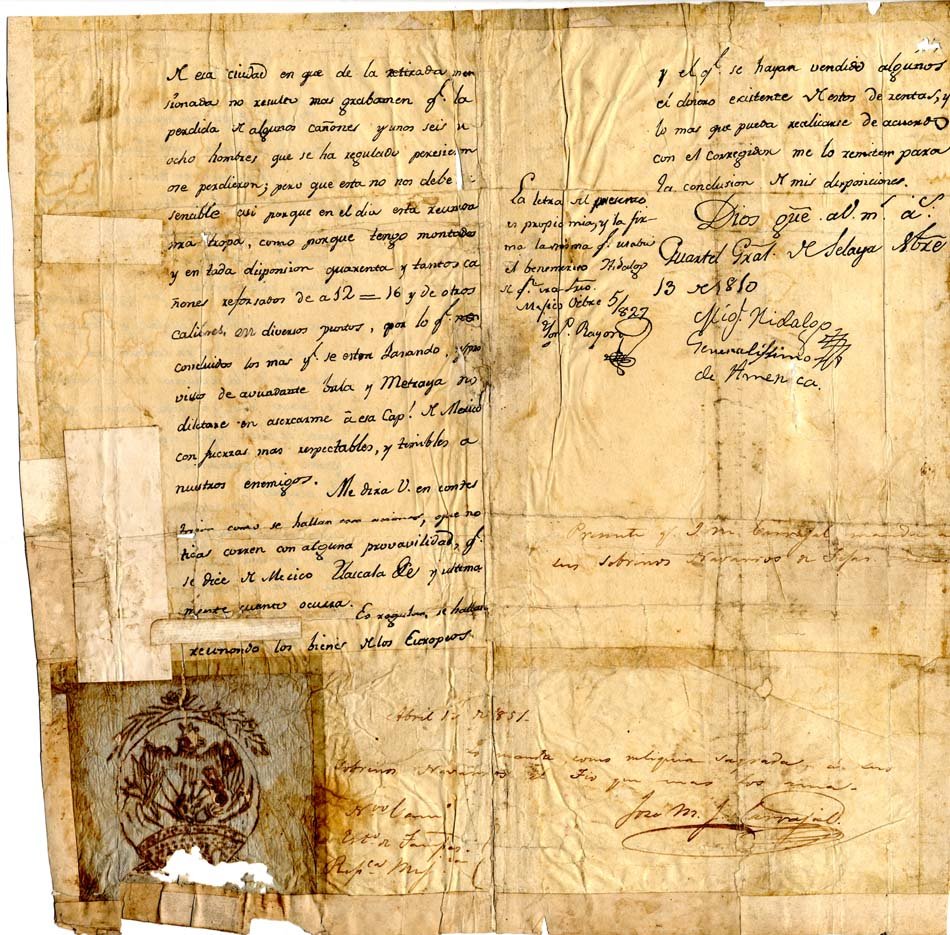 N esa ciudad en que de la retirada men
sionada no resulto mas grabamen qe. la
perdida N algunos cañones y unos seis u
ocho hombres que se ha regulado
se perdieron; pero que esta no nos debe
sencible asi porque en el dia esta reunida
tropa, como porque tengo montados
y en toda dispocion quarenta y tantos ca
ñones reforsados de a 12 = 16 y de otros
calibres en diversos puntos, por lo qe.
concluidos los mas qe. se estan
de bala y Metraya no
dilatare en asercarme à esa Capl. N Mexico
con fuerzas mas respectables, y temibles a
nuestros enemigos. Me dira V. en contes
como se hallan que no
ticias corren con alguna provavilidad, qe.
se dice N Mecico Tlaxcala &e y ultima
mente cuanto ocurra. Es regular, se hallan
reuniendo los bienes N los Europeos.
y el qe. se hayan vendido algunos
el dinero existente N estos de rentas, y
lo mas que pueda realicarse de acuerdo
con el corregidor me lo remitem para
la conclusion N mis disposiciones.
Dios gue. a V. ms. as.
Quartel Gral. N Selaya Nbre
13 de 1810
Migl. Hidalgo
Generalissimo
de America.
La letra del presente
es propia mia, y la fir
ma la misma qe. usaba
el benemerito Hidalgo
N qn. era Srio.
Mexico Octbre 5/827
Rayon
Carvajal
sus Sobrinos Navarros de Tejas
Abril de 1851.
como reliquia sagrada, a sus
Sobrinos Navarros el Tio que mas los ama.
José M. J. Carvajal